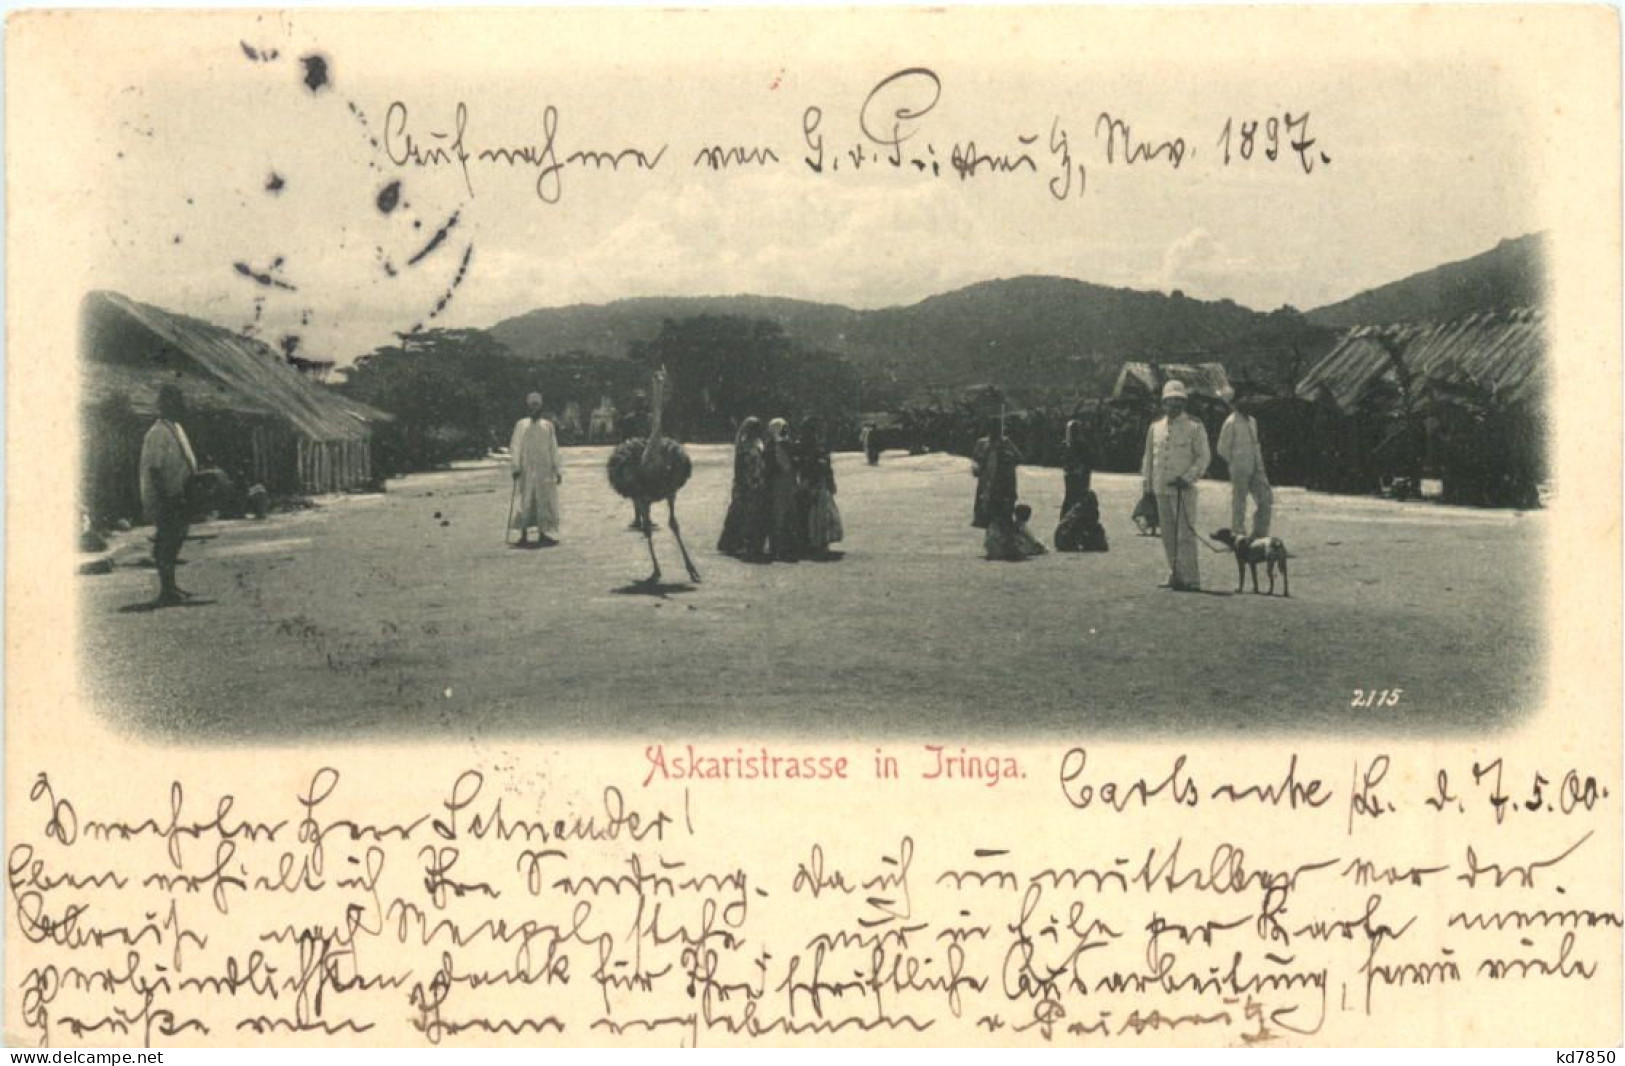 Aufnahme von G. v. Prittwitz, Nov. 1897.
2115
Askaristrasse in Iringa.
Carlsruhe /B. d. 7.5.00.
Verehrter Herr Schneider!
Eben erhielt ich Ihre Sendung. Da ich unmittelbar vor der
Abreise nach Neapel stehe, nur in Eile per Karte meinen
verbindlichsten Dank für Ihre schriftliche Ausarbeitung, sowie viele
Grüße von Ihrem ergebenen v. Prittwitz
delcampe.net
kd7850